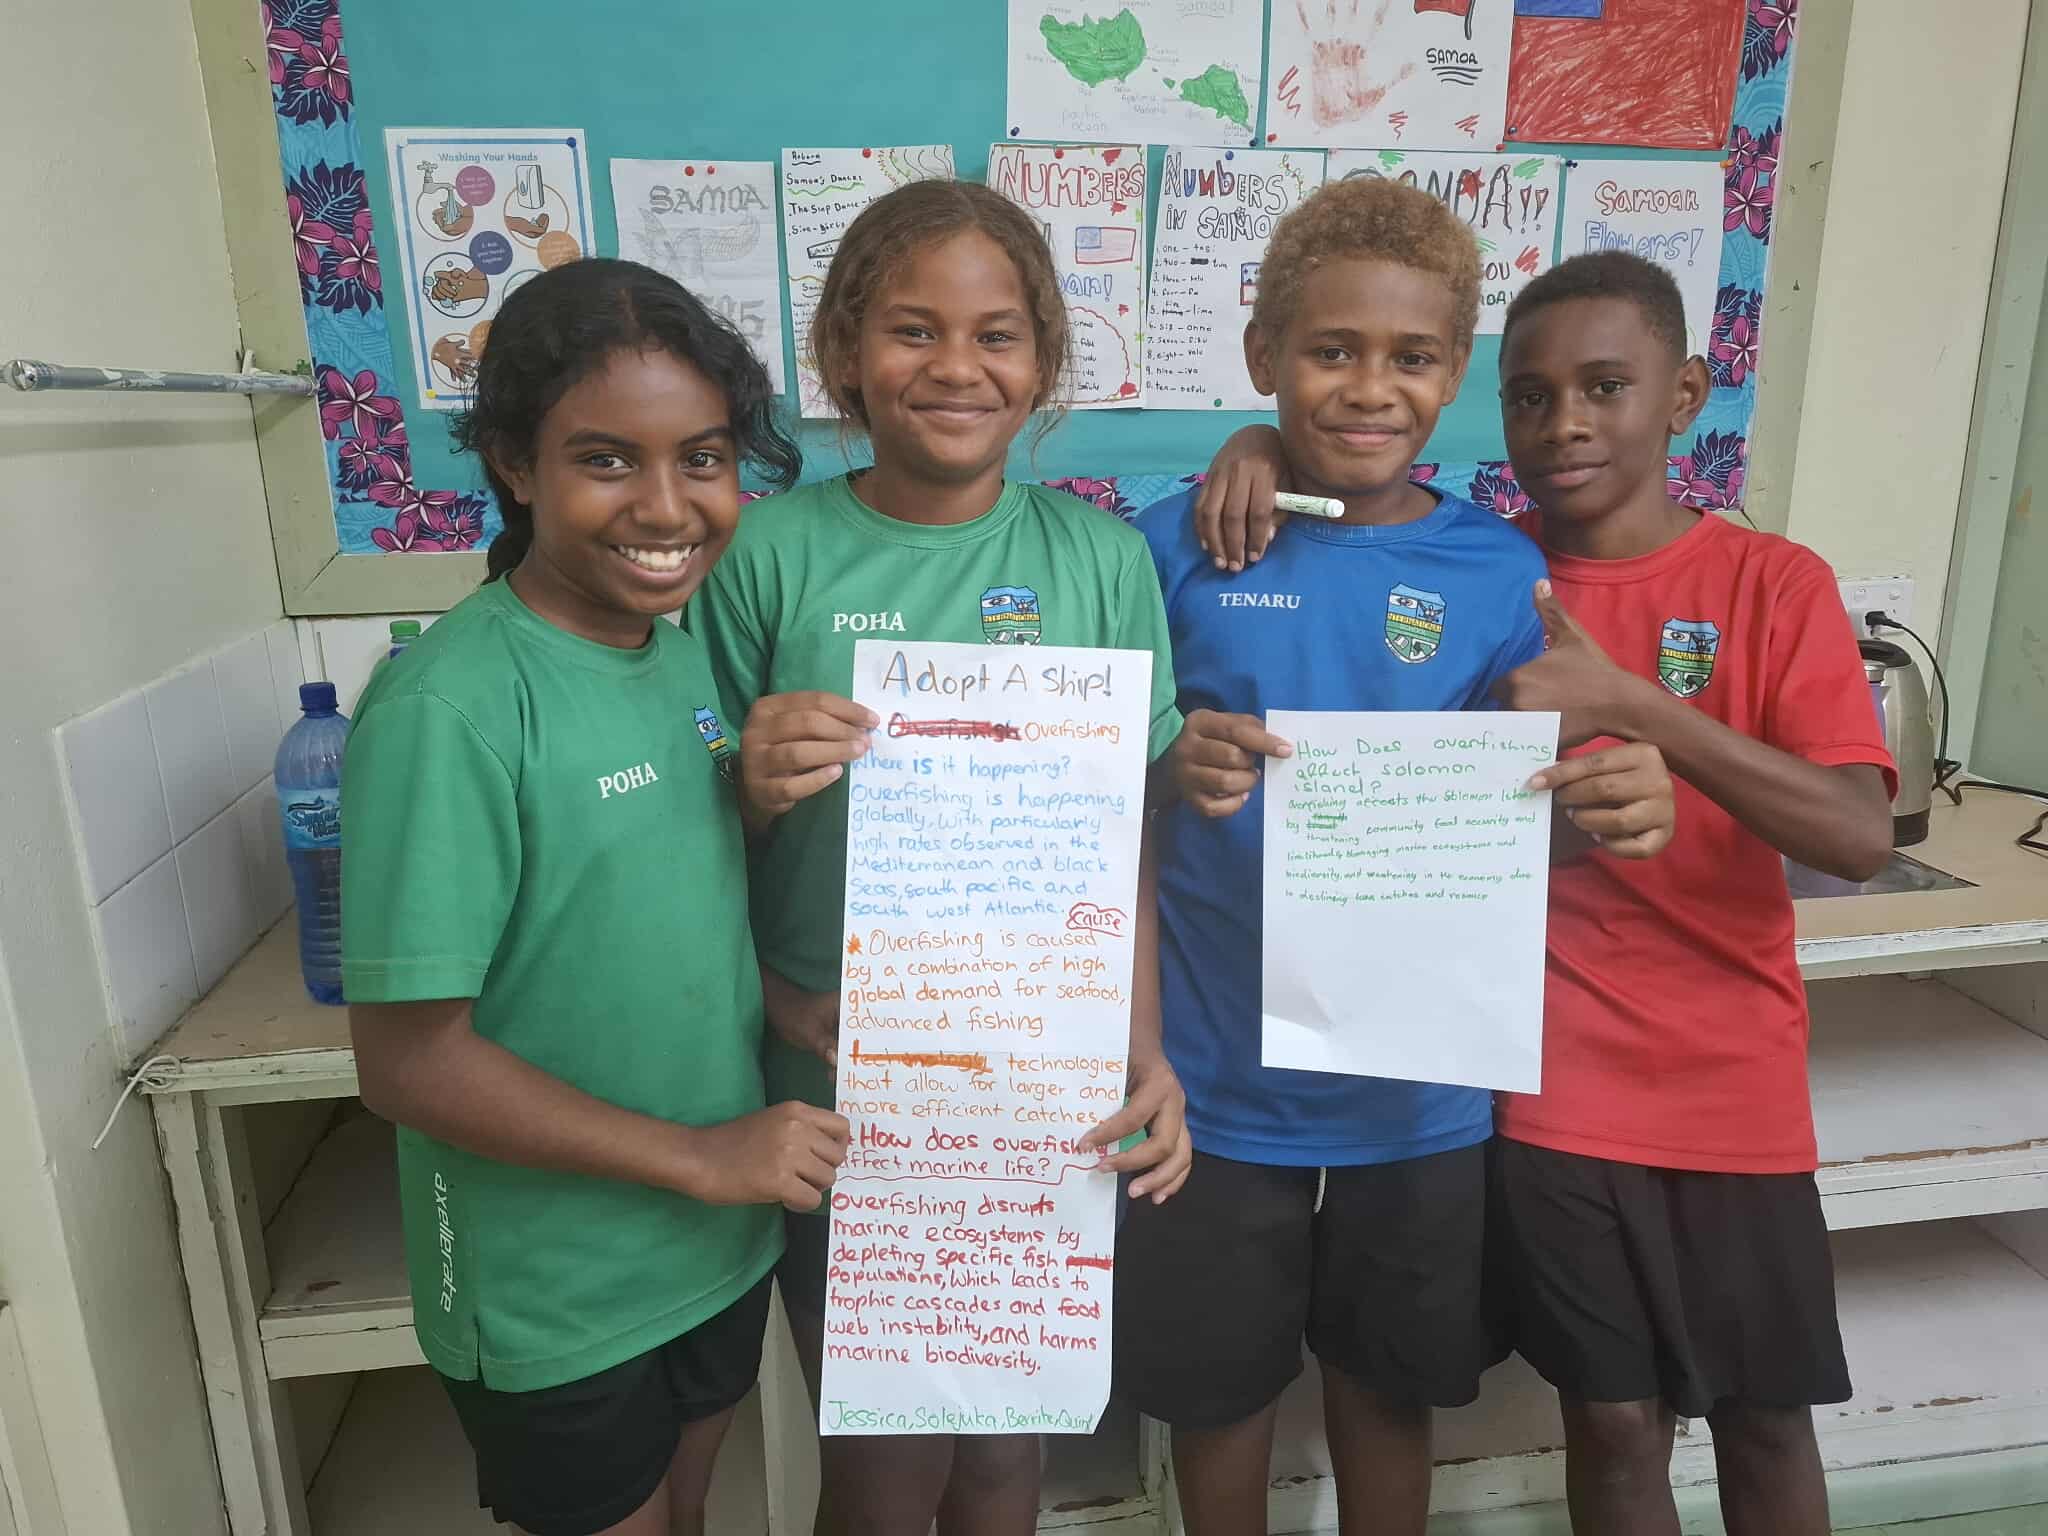 Samoa!
pacific
ocean
SAMOA
Washing Your Hands
SAMOA
Samoa's Dances
NUMBERS
NUMBERS
IN SAMOA
1. one - tasi
3. three - tolu
4. four - fa
5. five - lima
6. six - ono
8. eight - valu
9. nine - iva
Samoan
Flowers!
POHA
POHA
TENARU
INTERNATIONAL
INTERNATIONAL
axellerate
Adopt A Ship!
Overfishing
Where is it happening?
Overfishing is happening
globally, with particularly
high rates observed in the
Mediterranean and black
Seas, south pacific and
south west Atlantic.
cause
Overfishing is caused
by a combination of high
global demand for seafood,
advanced fishing
technologies
that allow for larger and
more efficient catches.
How does overfishing
affect marine life?
Overfishing disrupts
marine ecosystems by
depleting specific fish
Populations, which leads to
trophic cascades and food
web instability, and harms
marine biodiversity.
Jessica, Solejuka,
How Does overfishing
affect solomon
island?
Overfishing affects the Solomon Island
by threatening community food security and
livelihood, damaging marine ecosystems and
biodiversity, and weakening in the economy due
to declining tuna catches and revenue